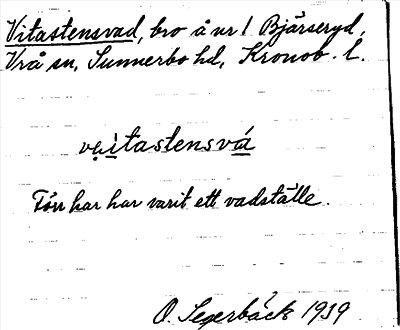 Vitastensvad, bro å nr 1 Bjärseryd,
Vrå sn, Sunnerbo hd, Kronob. l.
vi̯tastensvá
Förr har har varit ett vadställe.
O. Segerbäck 1939